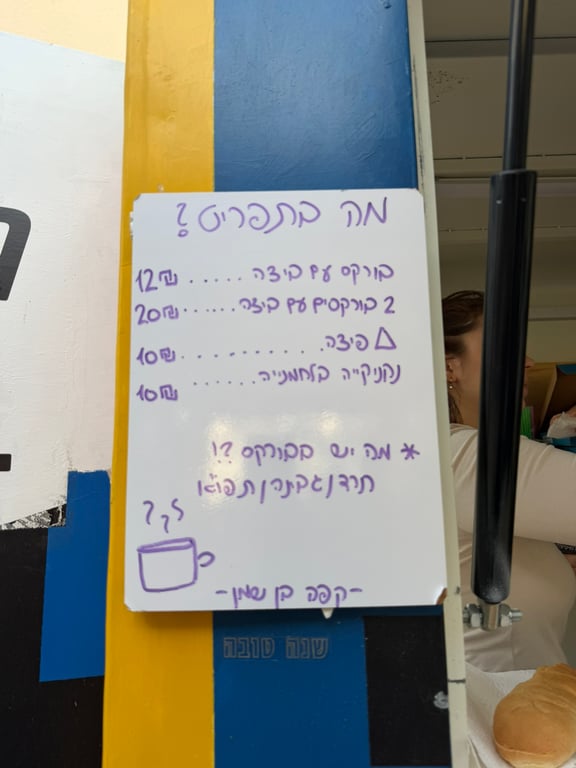 מה בתפריט?
בורקס עם ביצה ...... 12₪
2 בורקסים עם ביצה ...... 20₪
△ פיצה. .......... 10₪
נקניקייה בלחמנייה ...... 10₪
* מה יש בבורקס ?!
תרד/גבינה/תפו"א
-קפה בן שמן-
שנה טובה